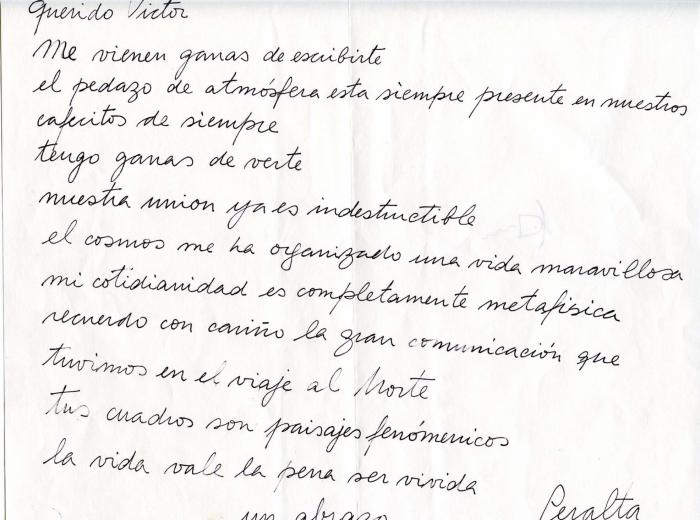 Querido Victor
Me vienen ganas de escribirte
el pedazo de atmósfera esta siempre presente en nuestros
cafecitos de siempre
tengo ganas de verte
nuestra union ya es indestructible
el cosmos me ha organizado una vida maravillosa
mi cotidianidad es completamente metafisica
recuerdo con cariño la gran comunicación que
tuvimos en el viaje al Norte
tus cuadros son paisajes fenómenicos
la vida vale la pena ser vivida
un abrazo Peralta